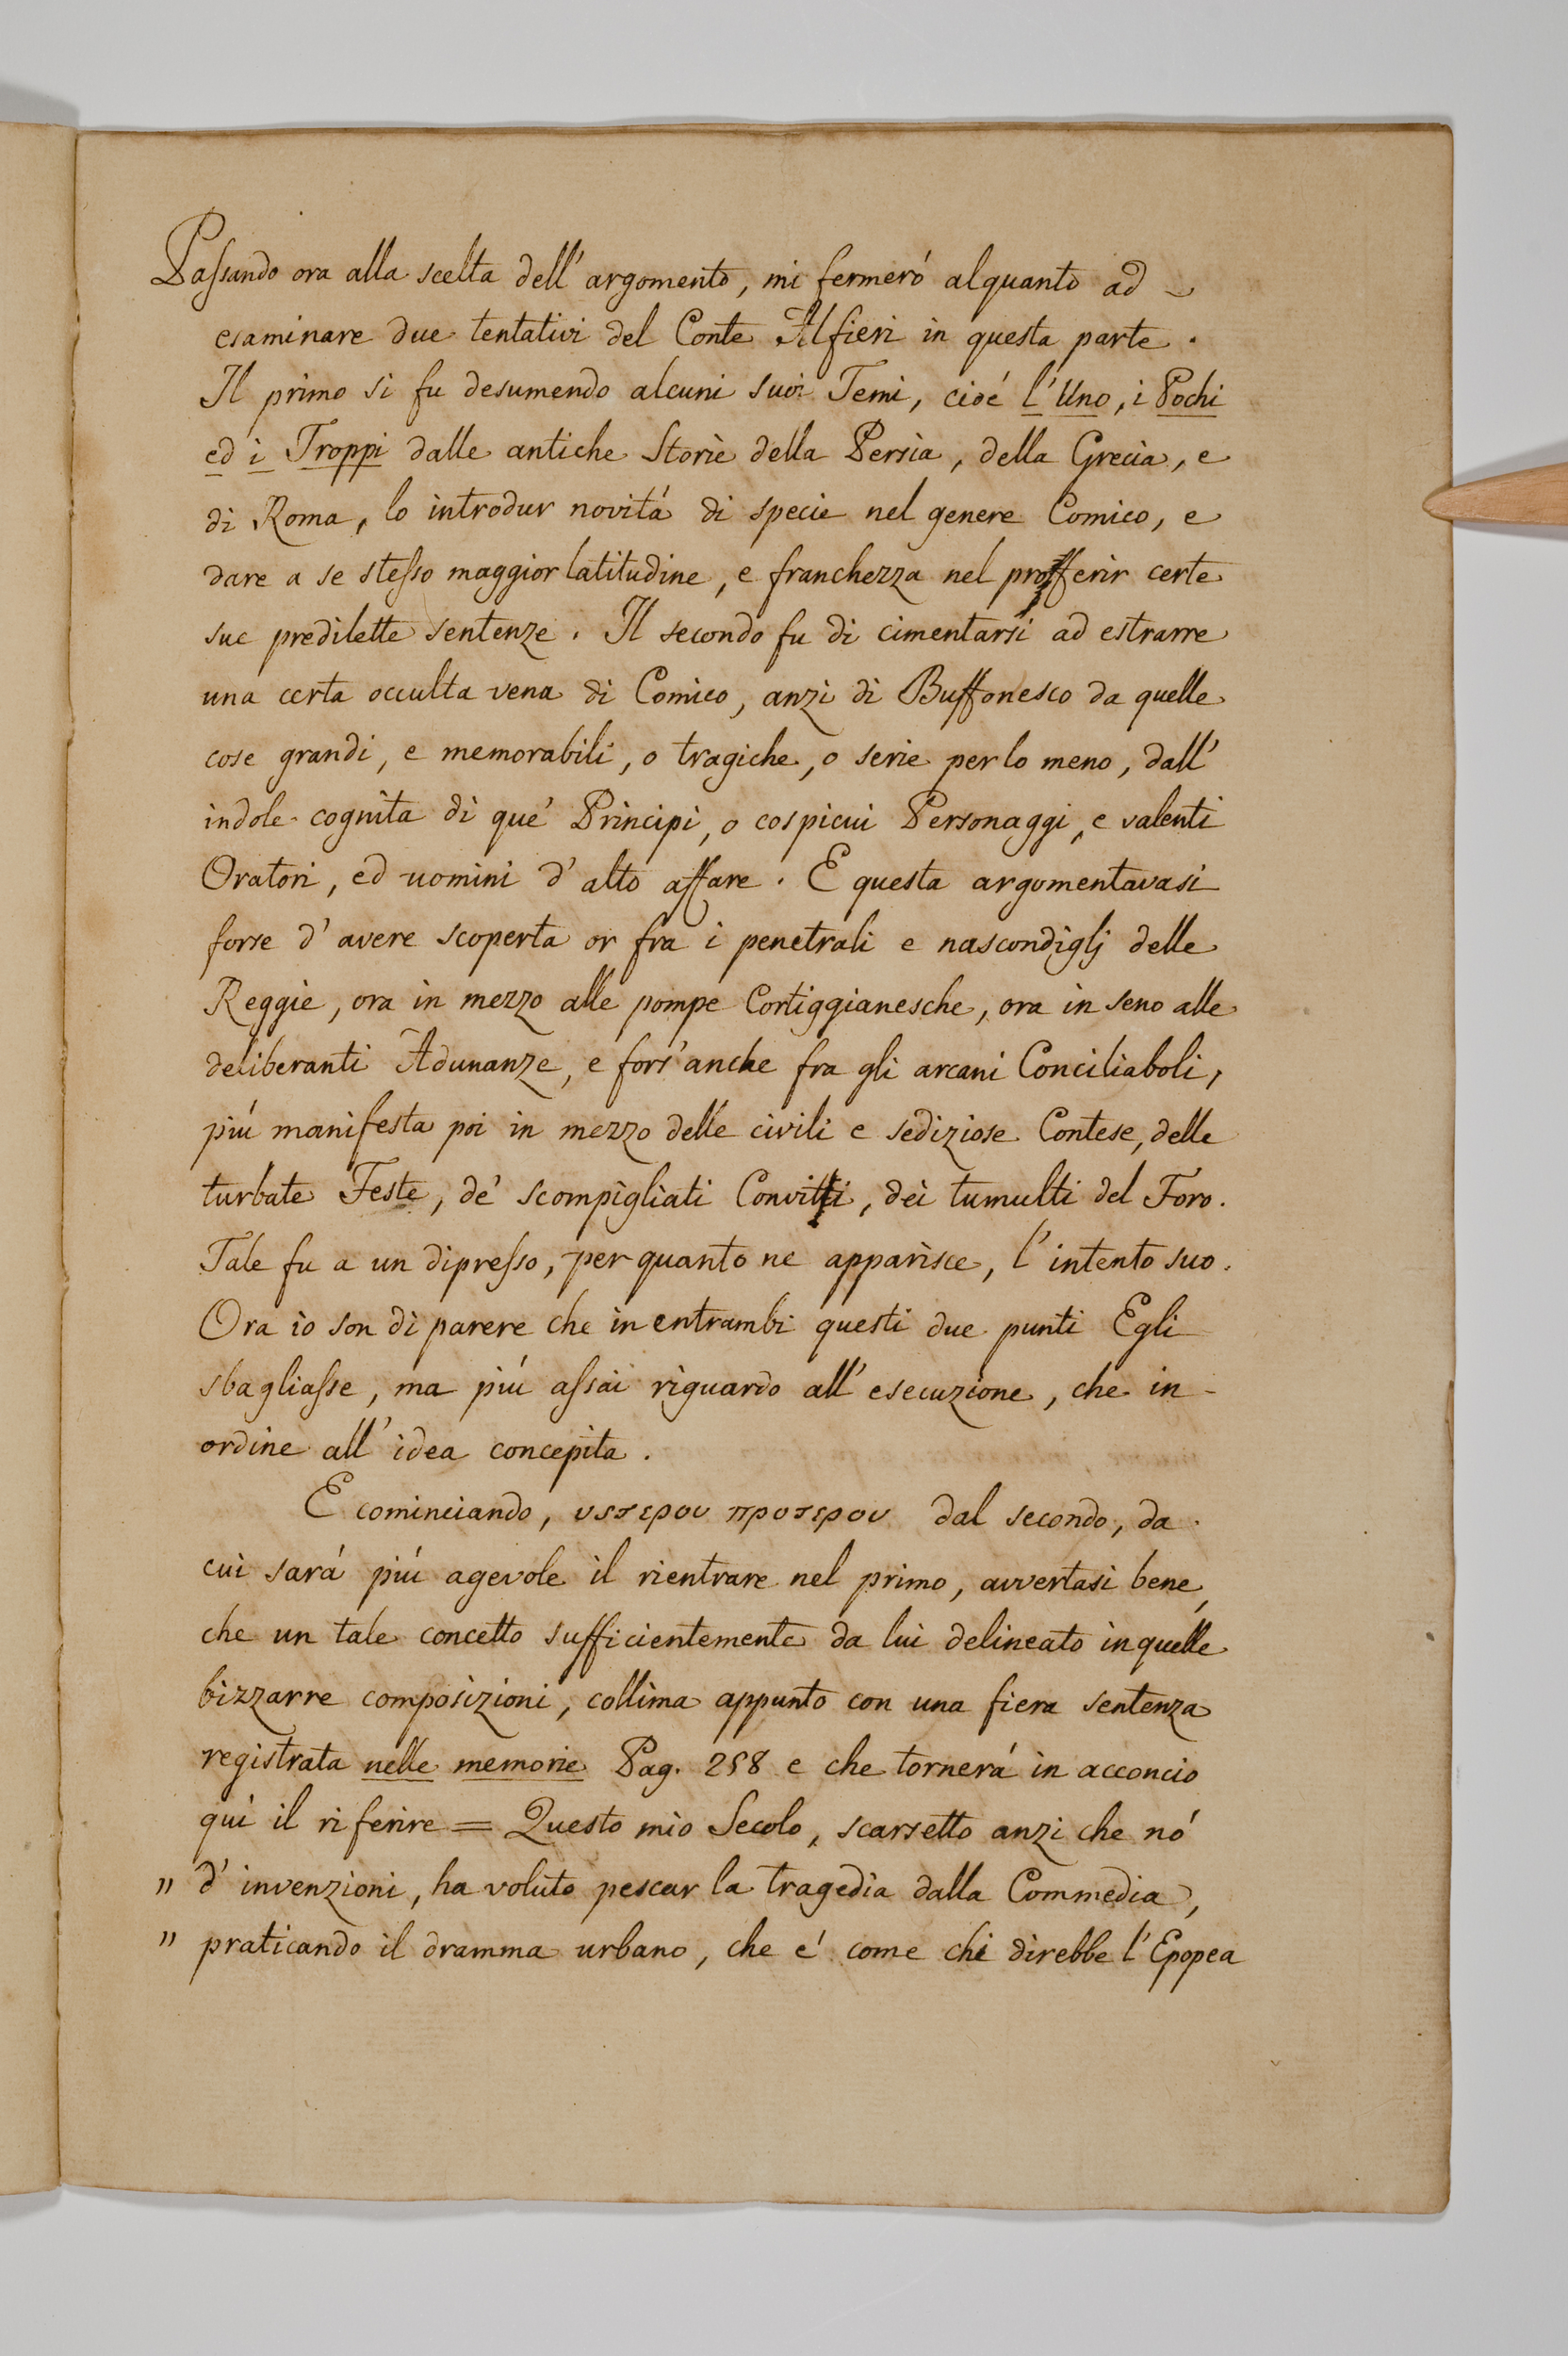 Passando ora alla scelta dell' argomento, mi fermeró alquanto ad
esaminare due tentativi del Conte Alfieri in questa parte.
Il primo si fu desumendo alcuni suoi Temi, cioé l' Uno, i Pochi
ed i Troppi dalle antiche Storie della Persia, della Grecia, e
di Roma, lo introdur novitá di specie nel genere Comico, e
dare a se stesso maggior latitudine, e franchezza nel profferir certe
sue predilette sentenze. Il secondo fu di cimentarsi ad estrarre
una certa occulta vena di Comico, anzi di Buffonesco da quelle
cose grandi, e memorabili, o tragiche, o serie per lo meno, dall'
indole cognita di que' Principi, o cospicui Personaggi, e valenti
Oratori, ed uomini d' alto affare. E questa argomentavasi
forse d' avere scoperta or fra i penetrali e nascondiglj delle
Reggie, ora in mezzo alle pompe Cortiggianesche, ora in seno alle
deliberanti Adunanze, e fors' anche fra gli arcani Conciliaboli,
piú manifesta poi in mezzo delle civili e sediziose Contese, delle
turbate Feste, de' scompigliati Convitti, dei tumulti del Foro.
Tale fu a un dipresso, per quanto ne apparisce, l' intento suo.
Ora io son di parere che in entrambi questi due punti Egli
sbagliasse, ma piú assai riguardo all' esecuzione, che in
ordine all' idea concepita.
E cominciando, υστερου προτερου dal secondo, da
cui sará piú agevole il rientrare nel primo, avvertasi bene,
che un tale concetto sufficientemente da lui delineato in quelle
bizzarre composizioni, collima appunto con una fiera sentenza
registrata nelle memorie Pag. 258 e che tornerá in acconcio
qui il riferire = Questo mio Secolo, scarsetto anzi che nó
" d' invenzioni, ha voluto pescar la tragedia dalla Commedia,
" praticando il dramma urbano, che é come chi direbbe l' Epopea